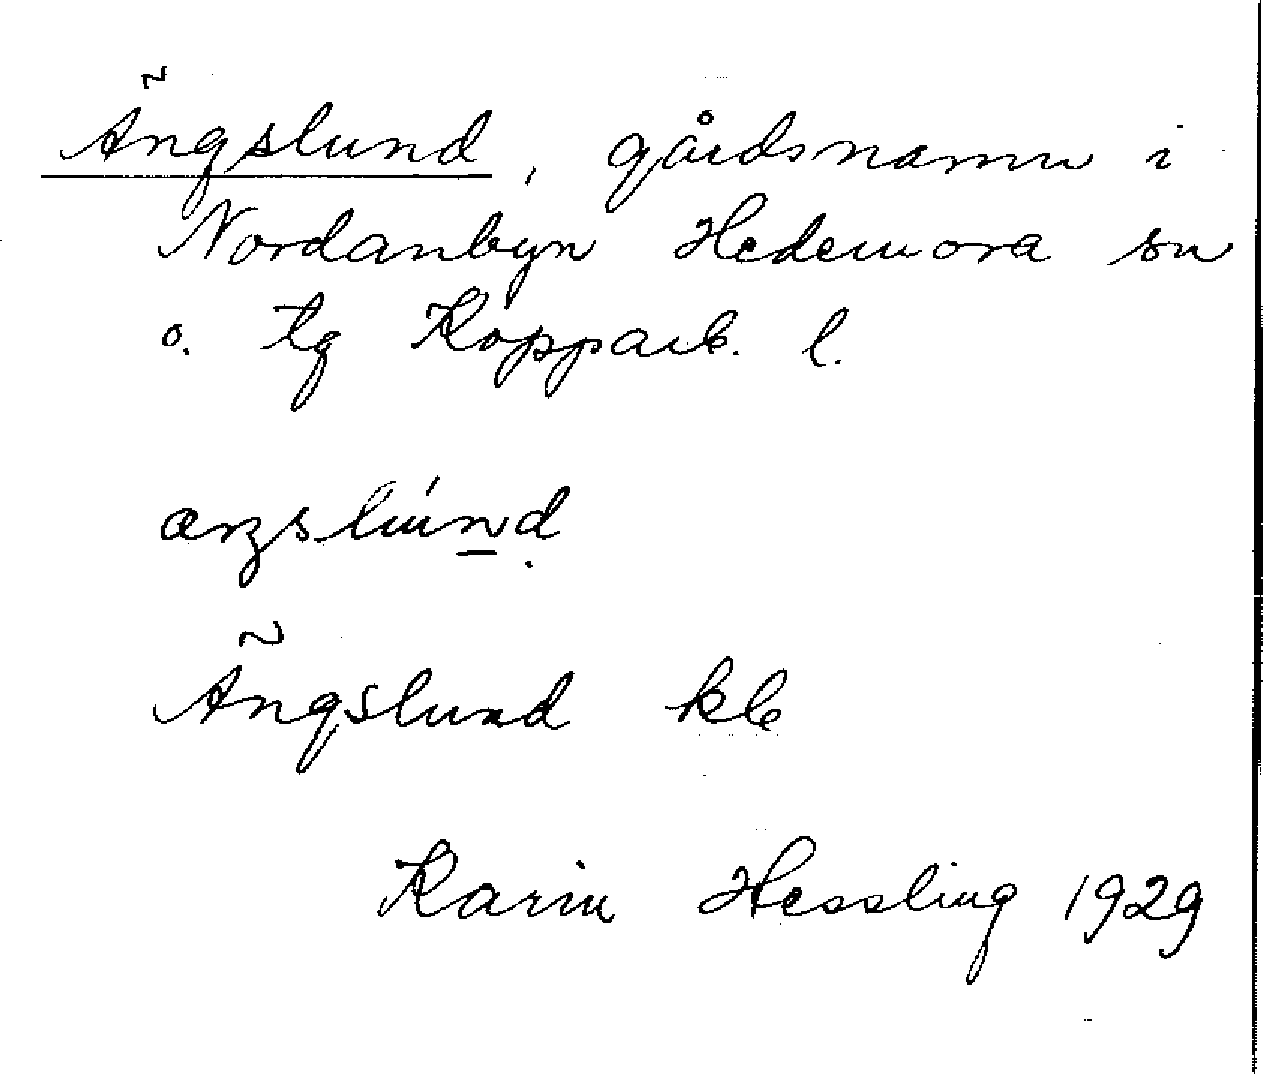 Ängslund, gårdsnamn i
Nordanbyn Hedemora sn
o. tg Kopparb. l.
æŋslúnd
Ängslund kb
Karin Hessling 1929